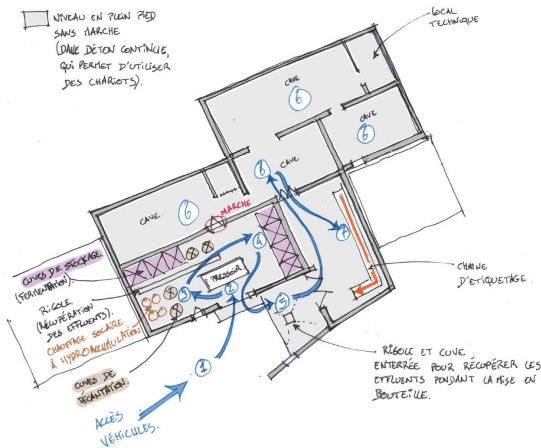 NIVEAU EN PLEIN PIED
SANS MARCHE
(DALLE BÉTON CONTINUE,
QUI PERMET D'UTILISER
DES CHARIOTS).
LOCAL
TECHNIQUE
CAVE
6
CAVE
6
CAVE
6
MARCHE
CAVE
6
4
7
CUVES DE STOCKAGE
(FERMENTATION).
RIGOLE
(RÉCUPÉRATION
DES EFFLUENTS).
CHAUFFAGE SOLAIRE
À HYDROACCUMULATION
PRESSOIR
3
2
5
1
CHAINE
D'ETIQUETAGE.
CUVES DE
DECANTATION
ACCÈS
VÉHICULES.
RIGOLE ET CUVE
ENTERRÉE POUR RÉCUPÉRER LES
EFFLUENTS PENDANT LA MISE EN
BOUTEILLE.